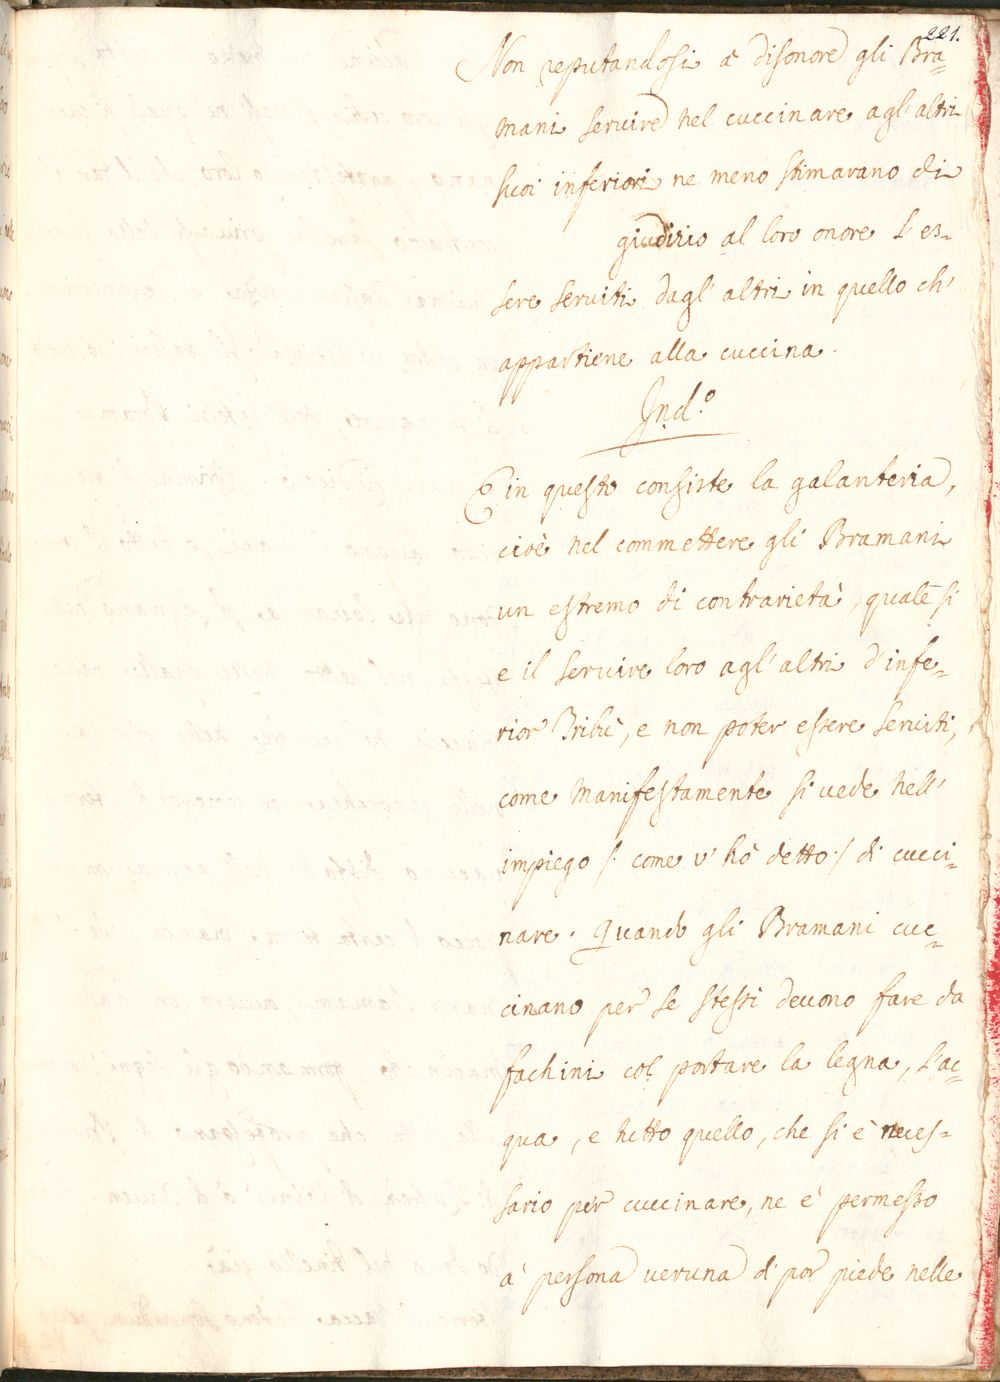 221.
Non reputandosi à disonore gli Bra-
mani servire nel cuccinare agl'altri
suoi inferiori ne meno stimavano di
giudizio al loro onore l'es-
sere serviti dagl'altri in quello ch'
appartiene alla cuccina.
Ind.o
E in questo consiste la galanteria,
cioè nel commettere gli Bramani
un estremo di contrarietà, quale si
e il servire loro agl'altri d'infe-
rior Tribù, e non poter essere serviti,
come manifestamente si vede nell'
impiego /. come v'hò detto ./ di cucci-
nare. Quando gli Bramani cuc-
cinano per se stessi devono fare da
fachini col portare la legna, l'ac-
qua, e tutto quello, che si è neces-
sario per cuccinare, ne è permesso
a' persona veruna di por piede nelle